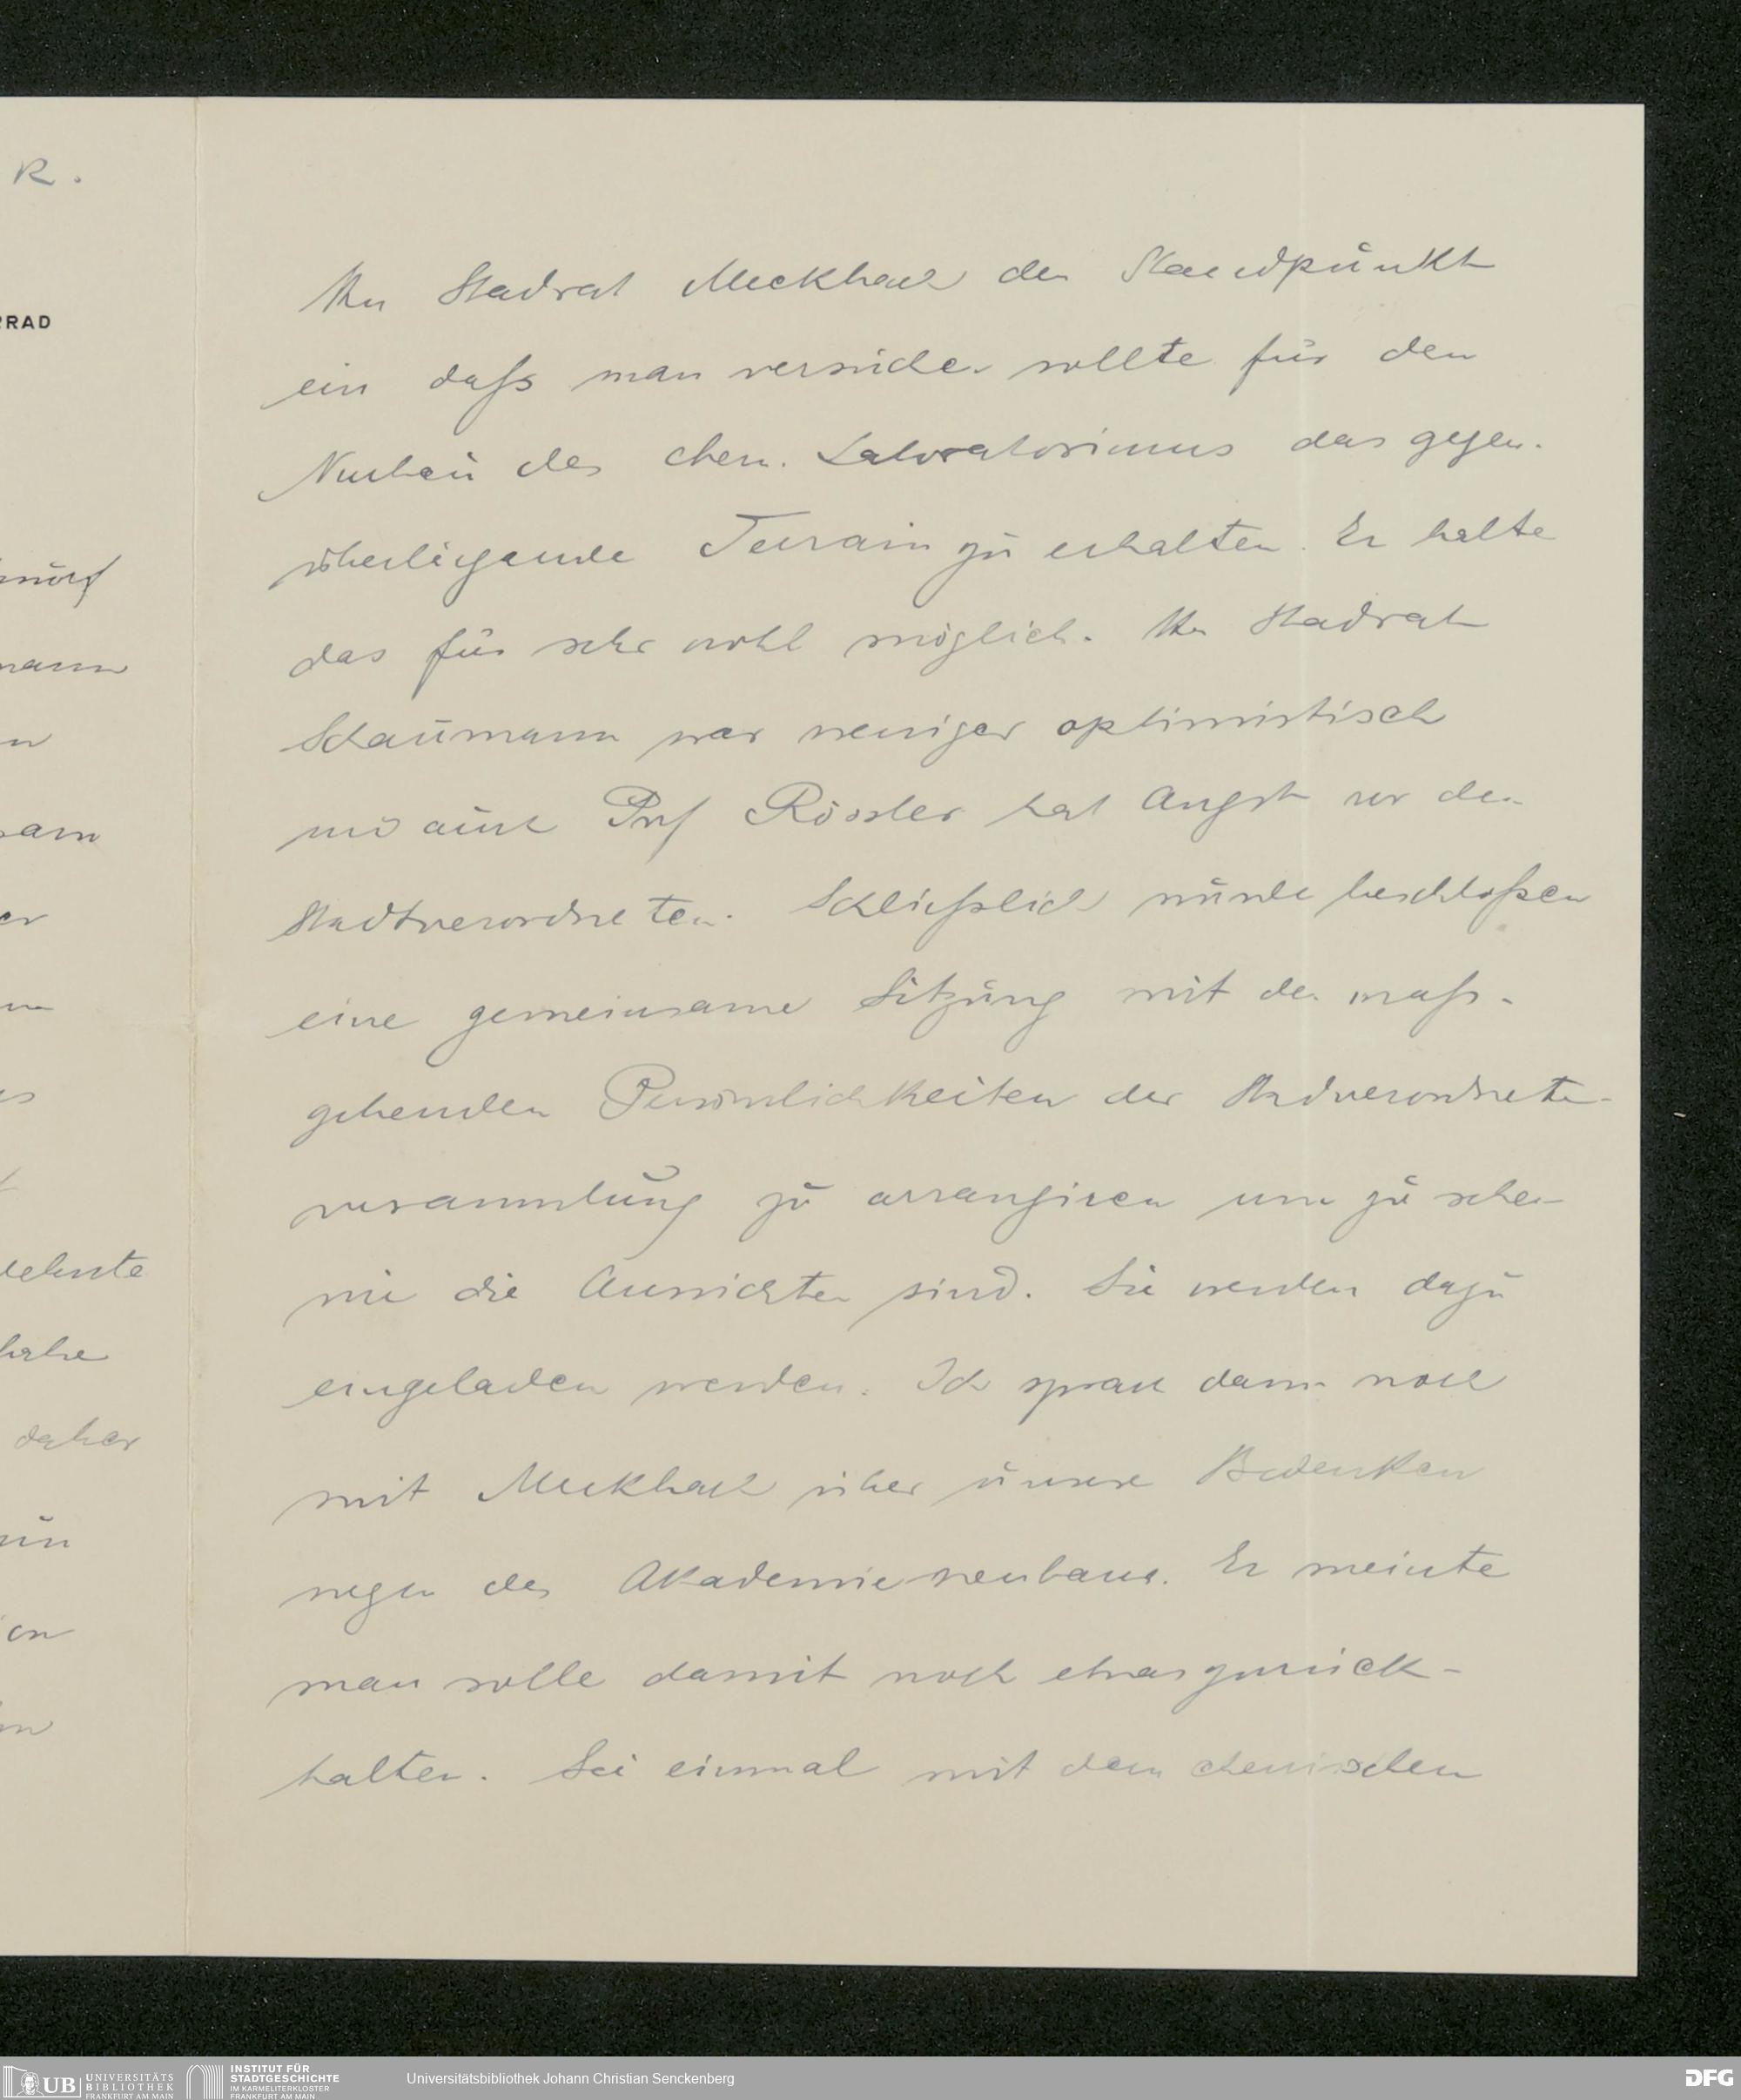 R.
RRAD
Hr Stadrat Meckbach den Standpunkt
ein daß man versuchen sollte für den
Neubau des chem. Laboratoriums das gegen-
überliegende Terrain zu erhalten. Er halte
das für sehr wohl möglich. Hr Stadrat
Schaumann war weniger optimistisch
und auch Prof Rössler hat Angst vor den
Stadtverordneten. Schließlich wurde beschloßen
eine gemeinsame Sitzung mit den maß-
gebenden Persönlichkeiten der Stadverordneten-
versammlung zu arrangiren um zu sehen
wie die Aussichten sind. Sie werden dazu
eingeladen werden. Ich sprach dann noch
mit Meckbach über unsere Bedenken
wegen des Akademieneubaus. Er meinte
man solle damit noch etwas zurück-
halten. Sei einmal mit dem chemischen
lehnte
habe
daher
UB UNIVERSITÄTS
BIBLIOTHEK
FRANKFURT AM MAIN
INSTITUT FÜR
STADTGESCHICHTE
IM KARMELITERKLOSTER
FRANKFURT AM MAIN
Universitätsbibliothek Johann Christian Senckenberg
DFG